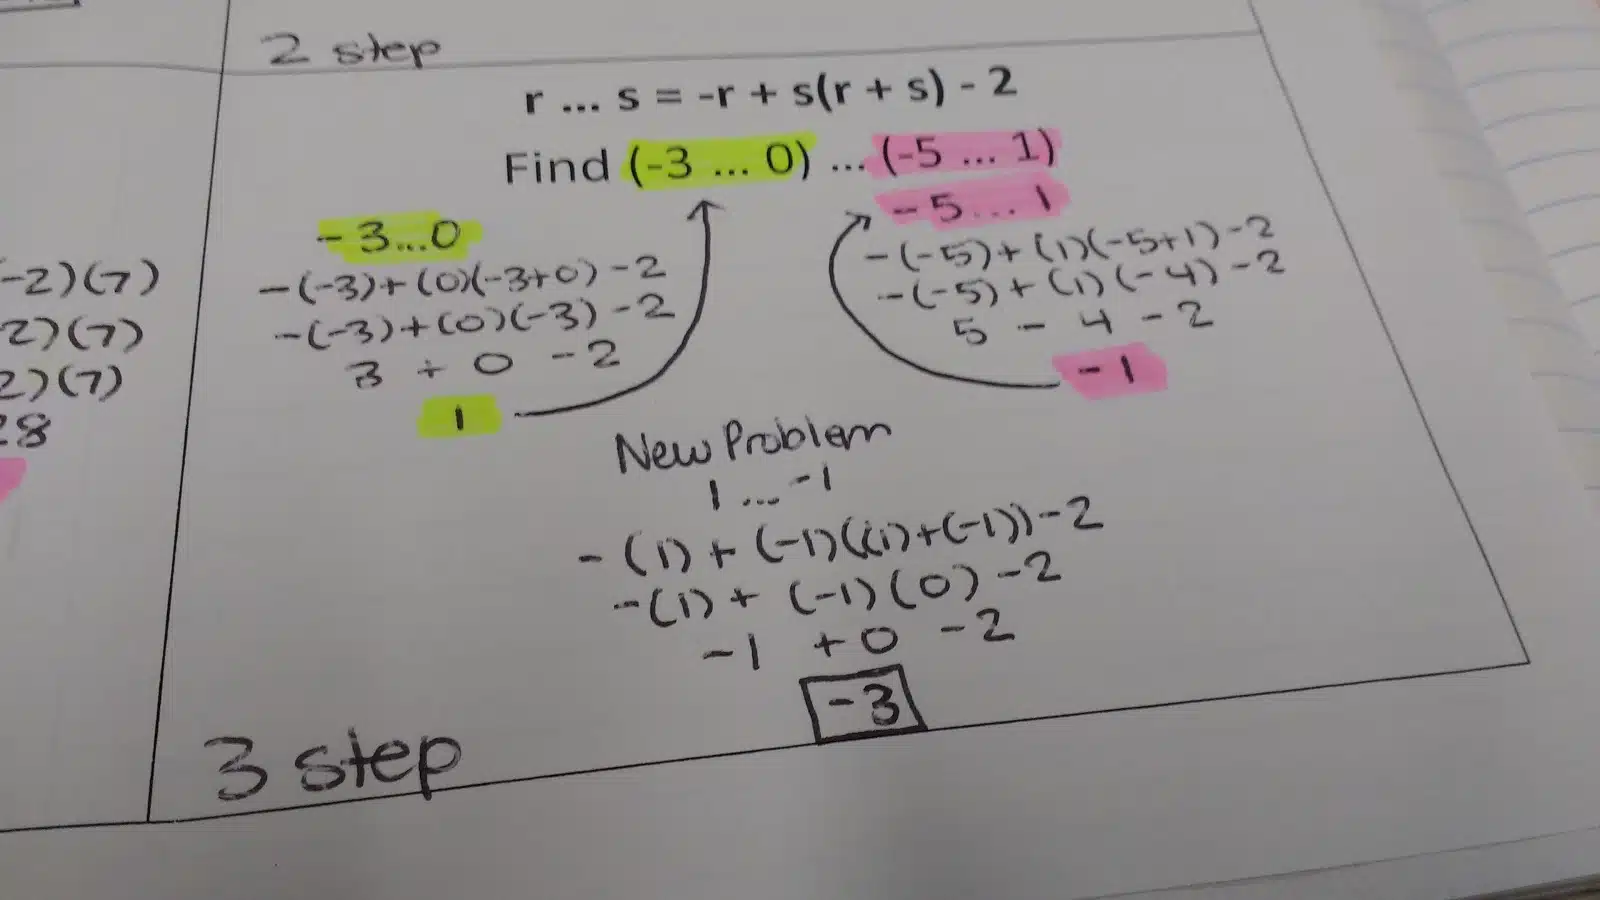 2 step
r ... s = -r + s(r + s) - 2
Find (-3 ... 0) ... (-5 ... 1)
-3...0
-(-3)+(0)(-3+0)-2
-(-3)+(0)(-3)-2
3 + 0 -2
1
-5...1
-(-5)+(1)(-5+1)-2
-(-5)+(1)(-4)-2
5 - 4 -2
-1
New Problem
1 ... -1
-(1)+(-1)((1)+(-1))-2
-(1)+(-1)(0)-2
-1 +0 -2
-3
3 step
-2)(7)
2)(7)
2)(7)
28